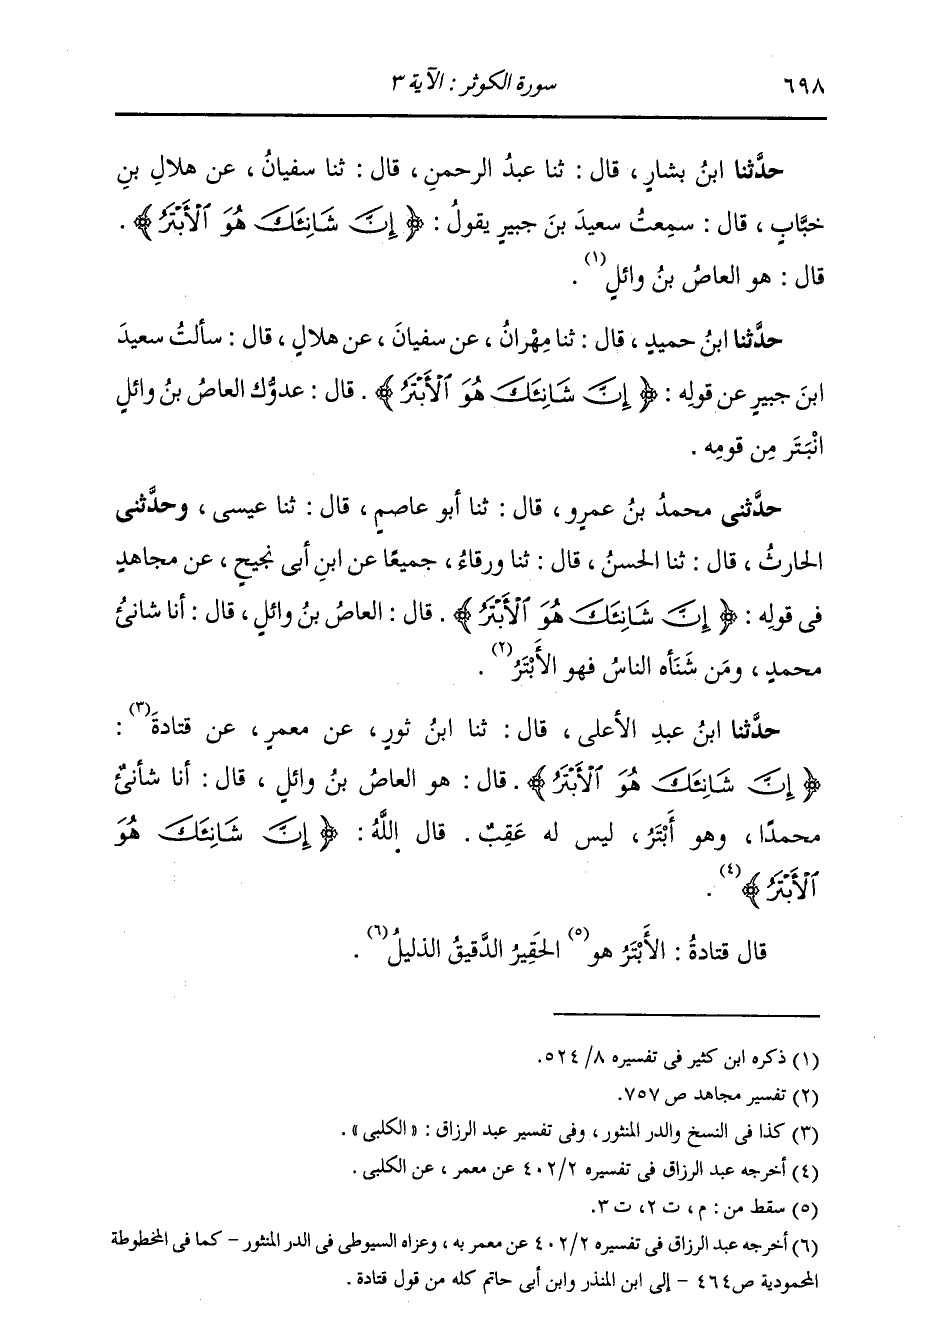 ٦٩٨ سورة الكوثر : الآية ٣
حدَّثنا ابنُ بشارٍ ، قال : ثنا عبدُ الرحمنِ ، قال : ثنا سفيانُ ، عن هلالِ بنِ
خبَّابٍ ، قال : سمِعتُ سعيدَ بنَ جبيرٍ يقولُ : ﴿ إِنَّ شَانِئَكَ هُوَ ٱلْأَبْتَرُ ﴾ .
قال : هو العاصُ بنُ وائلٍ(١) .
حدَّثنا ابنُ حميدٍ ، قال : ثنا مِهْرانُ ، عن سفيانَ ، عن هلالٍ ، قال : سألتُ سعيدَ
ابنَ جبيرٍ عن قولِه : ﴿ إِنَّ شَانِئَكَ هُوَ ٱلْأَبْتَرُ ﴾ . قال : عدوُّك العاصُ بنُ وائلٍ
انْبَتَر مِن قومِه .
حدَّثنى محمدُ بنُ عمرٍو ، قال : ثنا أبو عاصمٍ ، قال : ثنا عيسى ، وحدَّثنى
الحارثُ ، قال : ثنا الحسنُ ، قال : ثنا ورقاءُ ، جميعًا عن ابنِ أبى نجيحٍ ، عن مجاهدٍ
فى قولِه : ﴿ إِنَّ شَانِئَكَ هُوَ ٱلْأَبْتَرُ ﴾ . قال : العاصُ بنُ وائلٍ ، قال : أنا شانئُ
محمدٍ ، ومَن شَنَأه الناسُ فهو الأَبْتَرُ(٢) .
حدَّثنا ابنُ عبدِ الأعلى ، قال : ثنا ابنُ ثورٍ ، عن معمرٍ ، عن قتادةَ(٣) :
﴿ إِنَّ شَانِئَكَ هُوَ ٱلْأَبْتَرُ ﴾ . قال : هو العاصُ بنُ وائلٍ ، قال : أنا شأنئٌ
محمدًا ، وهو أَبْتَرُ ، ليس له عَقِبٌ . قال اللَّهُ : ﴿ إِنَّ شَانِئَكَ هُوَ
ٱلْأَبْتَرُ ﴾(٤) .
قال قتادةُ : الأَبْتَرُ هو(٥) الحَقِيرُ الدَّقيقُ الذليلُ(٦) .
(١) ذكره ابن كثير فى تفسيره ٨/ ٥٢٤.
(٢) تفسير مجاهد ص ٧٥٧.
(٣) كذا فى النسخ والدر المنثور ، وفى تفسير عبد الرزاق : « الكلبى » .
(٤) أخرجه عبد الرزاق فى تفسيره ٤٠٢/٢ عن معمر ، عن الكلبى .
(٥) سقط من : م ، ت ٢، ت ٣.
(٦) أخرجه عبد الرزاق فى تفسيره ٤٠٢/٢ عن معمر به ، وعزاه السيوطى فى الدر المنثور – كما فى المخطوطة
المحمودية ص٤٦٤ – إلى ابن المنذر وابن أبى حاتم كله من قول قتادة .